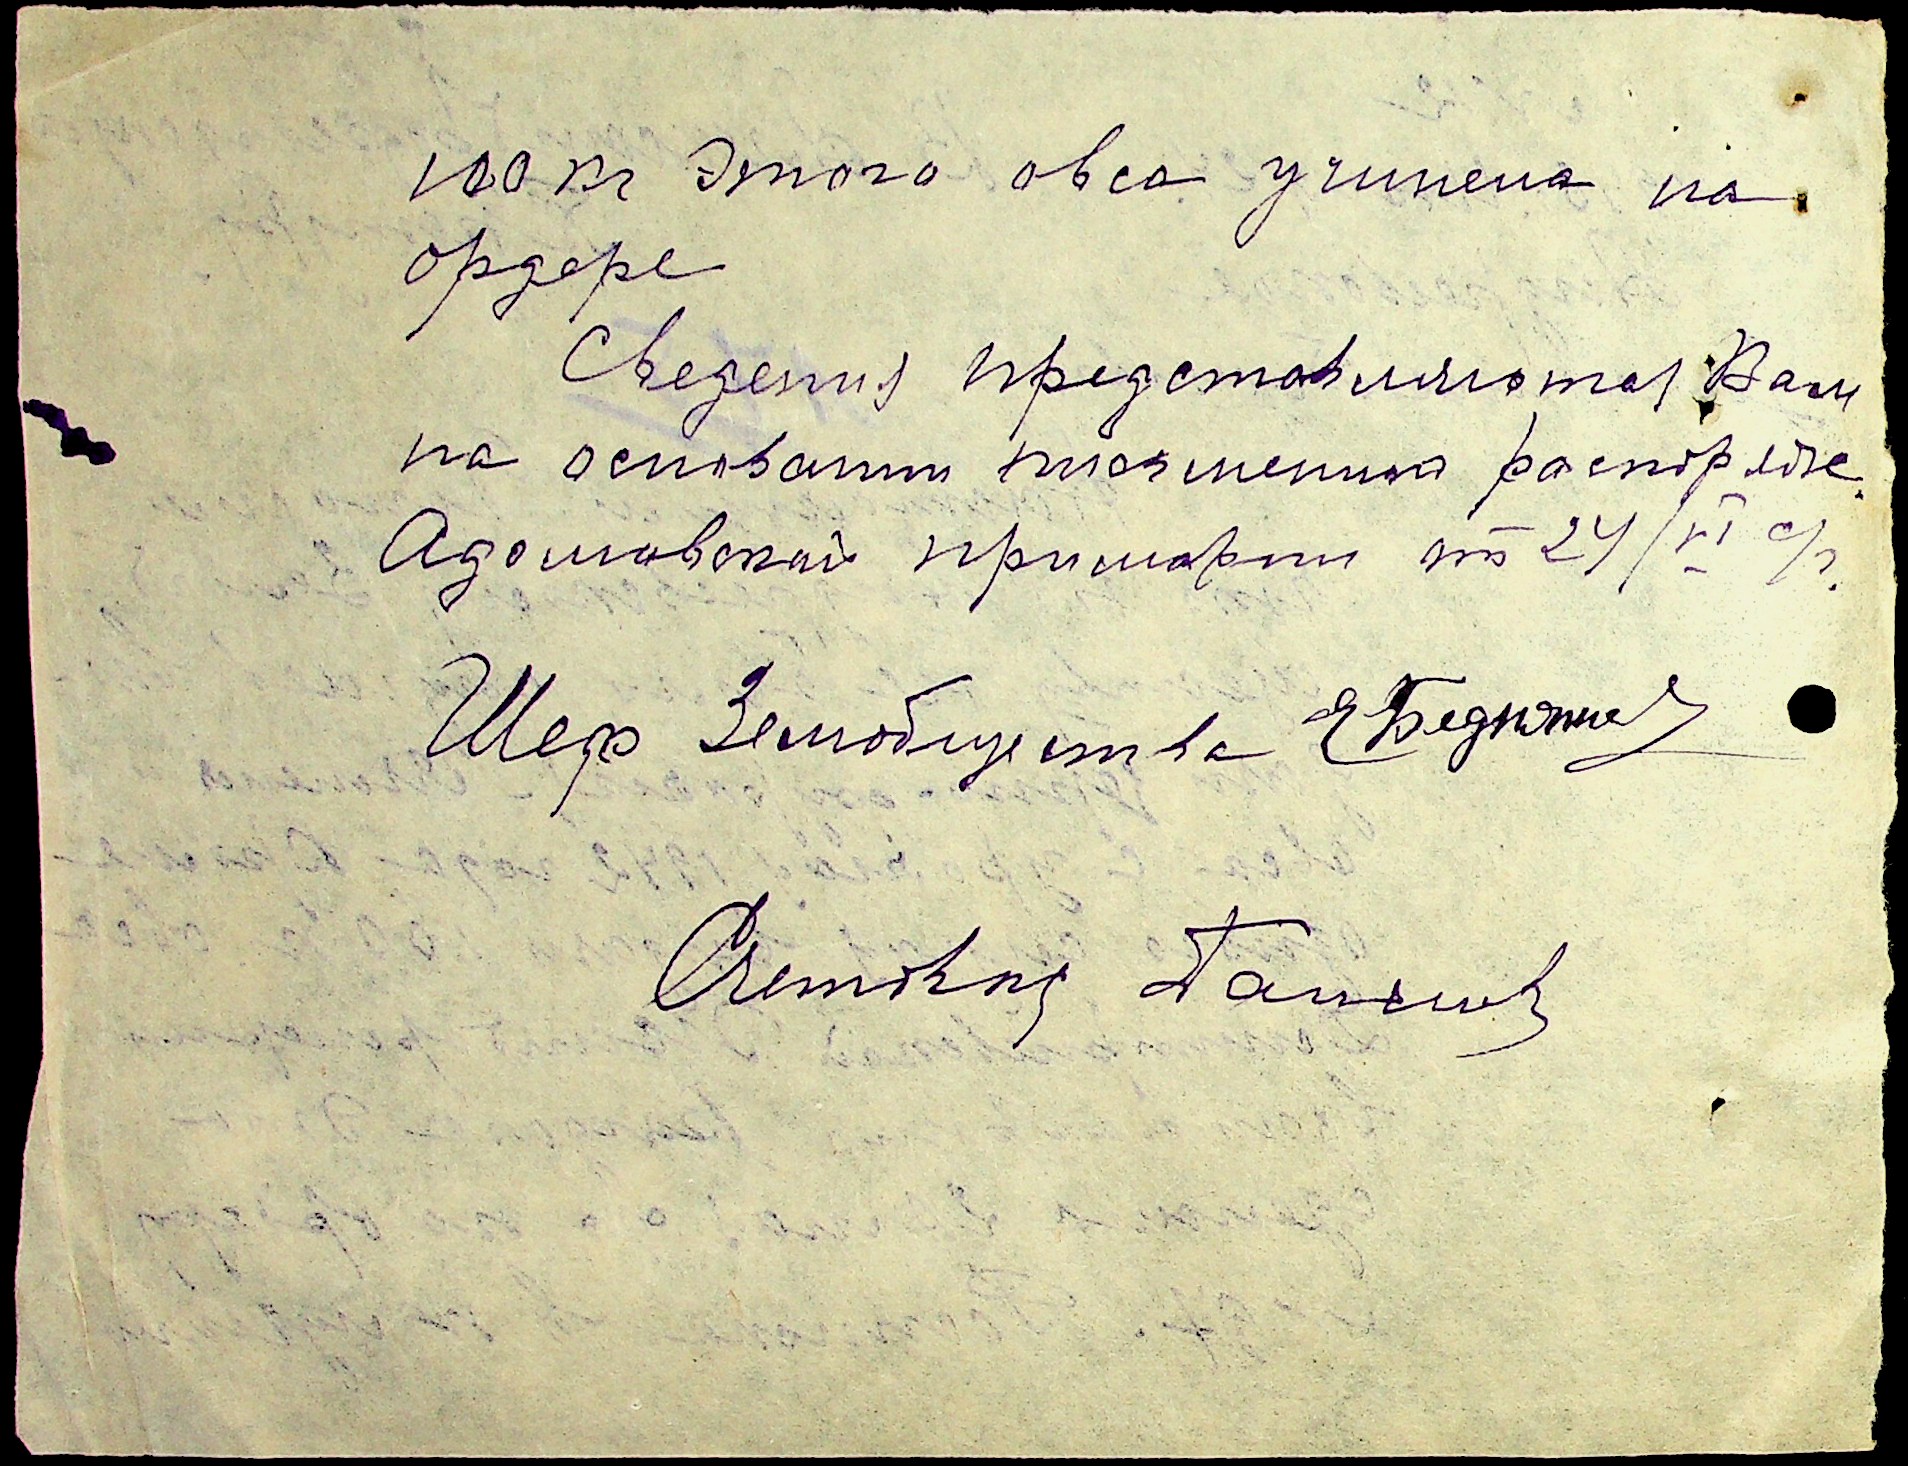 100 кг этого овса учинена на
ордере
Сведения представляются Вам
на основании письменной распоряже.
Адамовской примарии от 24/VI с/г.
Шеф Земобщества
Счетовод